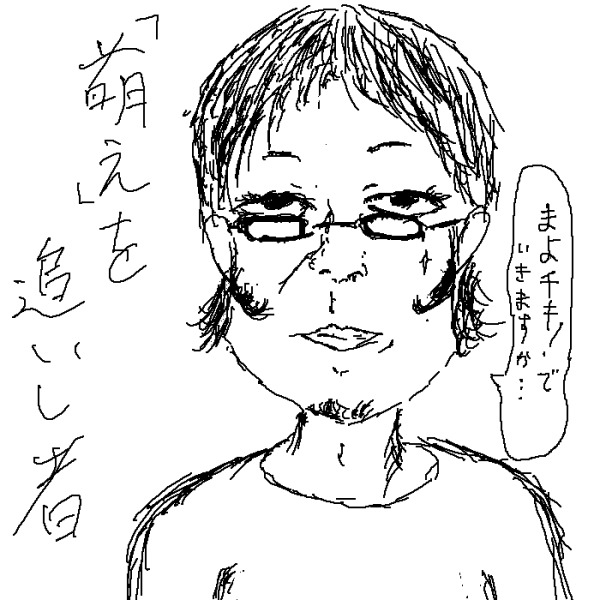 まよチキ!で
いきますか…
「萌え」を
追いし者